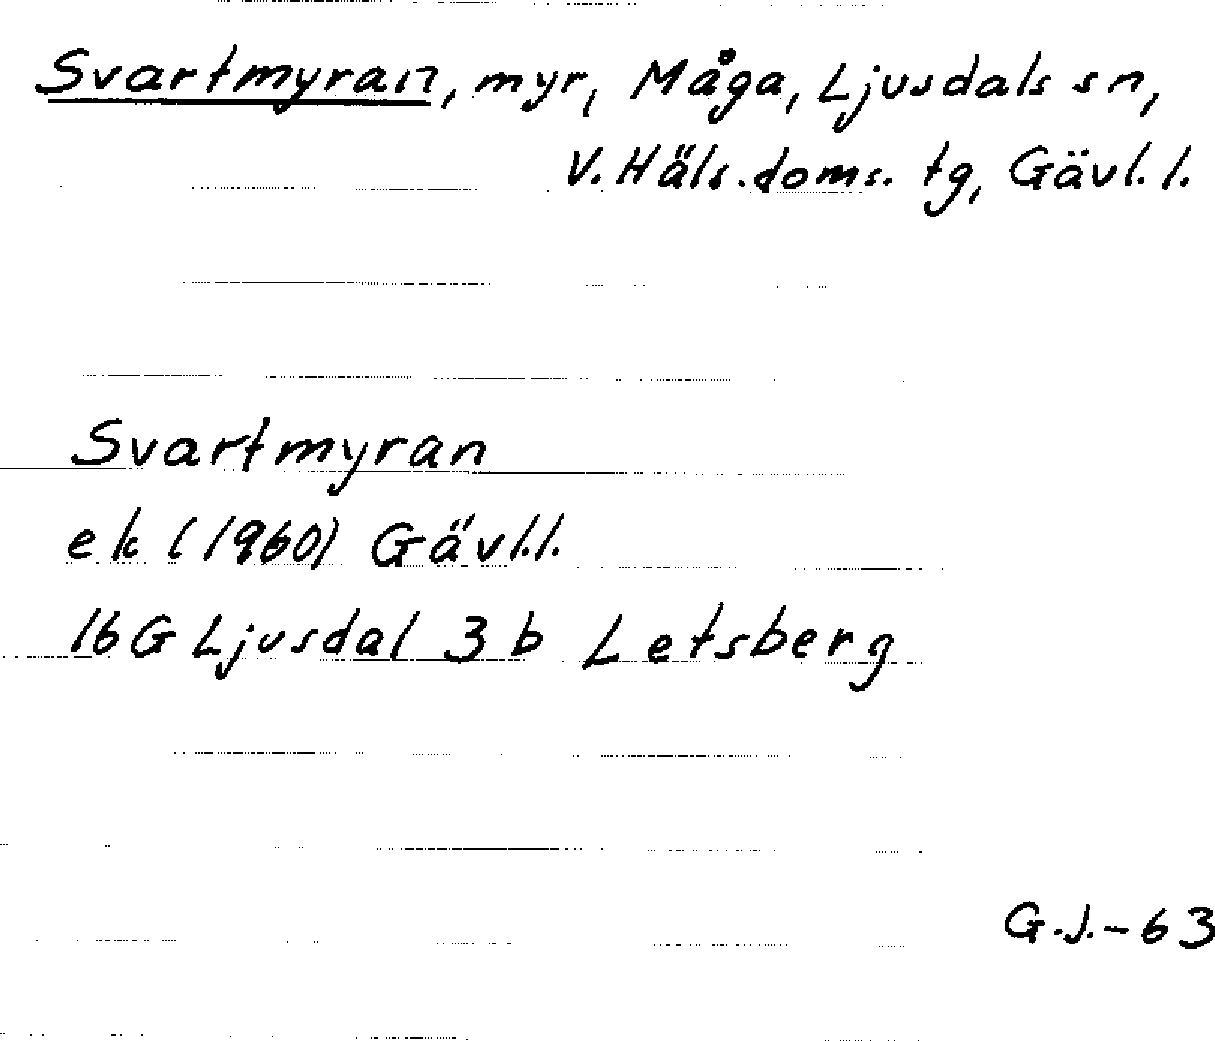 Svartmyran, myr, Måga, Ljusdals sn,
V. Häls. doms. tg, Gävl. l.
Svartmyran
ek (1960) Gävl. l.
16 G Ljusdal 3 b Letsberg
G.J.-63